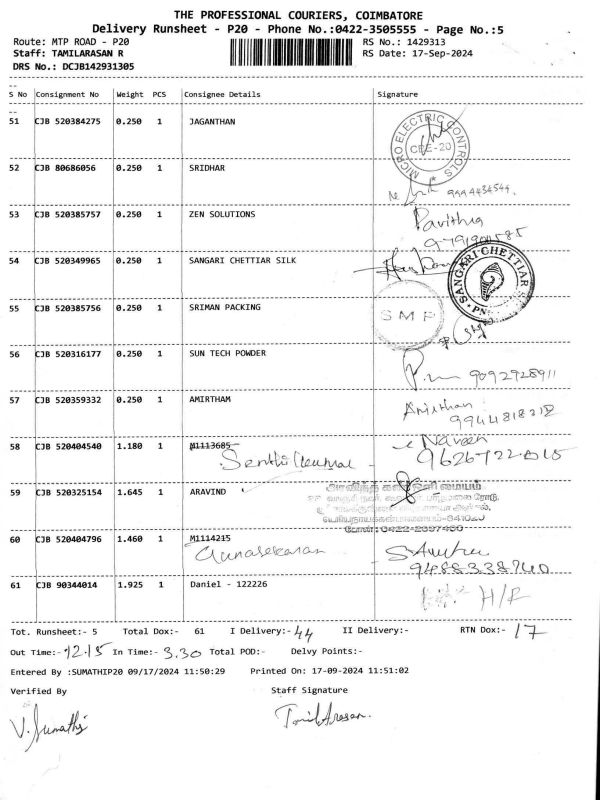 THE PROFESSIONAL COURIERS, COIMBATORE
Delivery Runsheet - P20 - Phone No.:0422-3505555 - Page No.:5
Route: MTP ROAD - P20 RS No.: 1429313
Staff: TAMILARASAN R RS Date: 17-Sep-2024
DRS No.: DCJB142931305
S No Consignment No Weight PCS Consignee Details Signature
51 CJB 520384275 0.250 1 JAGANTHAN
MICRO ELECTRIC CONTROLS
CBE-20
52 CJB 80686056 0.250 1 SRIDHAR
9994434544
53 CJB 520385757 0.250 1 ZEN SOLUTIONS Pavithra
54 CJB 520349965 0.250 1 SANGARI CHETTIAR SILK
SANGARI CHETTIAR
55 CJB 520385756 0.250 1 SRIMAN PACKING
SMP
56 CJB 520316177 0.250 1 SUN TECH POWDER
9092928911
57 CJB 520359332 0.250 1 AMIRTHAM
9944818218
58 CJB 520404540 1.180 1 M1113685 Naveen
Senthilkumar
59 CJB 520325154 1.645 1 ARAVIND
60 CJB 520404796 1.460 1 M1114215
Gunasekaran
9488338740
61 CJB 90344014 1.925 1 Daniel - 122226
H/R
Tot. Runsheet:- 5 Total Dox:- 61 I Delivery:- 44 II Delivery:- RTN Dox:- 17
Out Time:- 12.15 In Time:- 3.30 Total POD:- Delvy Points:-
Entered By :SUMATHIP20 09/17/2024 11:50:29 Printed On: 17-09-2024 11:51:02
Verified By Staff Signature
V. Sumathi TamilArasan.